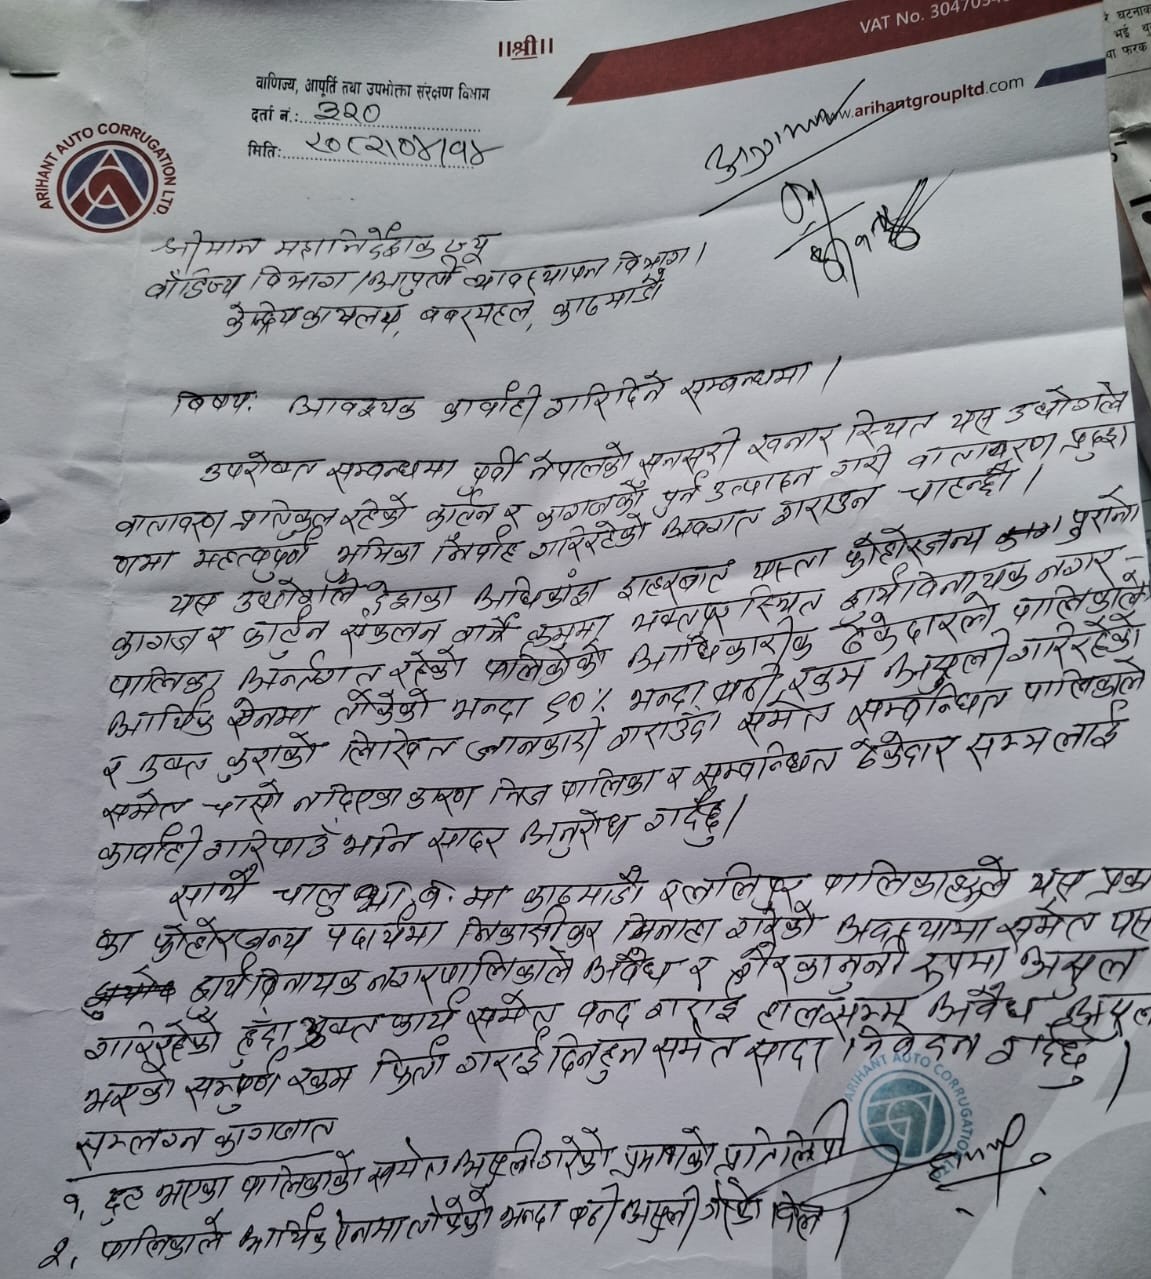 VAT No. 30470
॥श्री॥
www.arihantgroupltd.com
ARIHANT AUTO CORRUGATION LTD.
वाणिज्य, आपूर्ति तथा उपभोक्ता संरक्षण विभाग
दर्ता नं.: ३२०
मिति: २०८२।०४।१४
श्रीमान महानिर्देशक ज्यू
वाणिज्य विभाग/आपुर्ती व्यावस्थापन विभाग।
केन्द्रिय कार्यलय, बबरमहल, काठमाडौं
विषय: आवश्यक कार्वाही गरिदिने सम्बन्धमा।
उपरोक्त सम्बन्धमा पूर्वी नेपालको सुनसरी खनार स्थित यस उधोगले
वातावरण प्रतिकुल रहेको कार्टुन र कागजको पुर्न उत्पादन गरी वातावरण प्रदुष
णमा महत्वपुर्ण भुमिका निर्वाह गरिरहेको अवगत गराउन चाहन्छौं।
यस उधोगले देशका अधिकांश शहरबाट यस्ता फोहोरजन्य पुरानो
कागज र कार्टुन संकलन गर्ने क्रममा भक्तपुर स्थित सुर्यविनायक नगर-
पालिका अर्न्तगत रहेको पालिकाको आधिकारीक ठेकेदारले पालिकाले
आर्थिक ऐनमा तोकेको भन्दा ९०% भन्दा बढी रकम असुली गरिरहेको
र उक्त कुराको लिखित जानकारी गराउँदा समेत सम्बन्धित पालिकाले
समेत चासो नदिएका कारण निज पालिका र सम्बन्धित ठेकेदार सम्मलाई
कार्वाही गरिपाउँ भनि सादर अनुरोध गर्दछु।
साथै चालु आ.व. मा काठमाडौं र ललितपुर पालिकाहरुले यस प्रका
का फोहोरजन्य पदार्थमा निकासीकर मिनाहा गरेको अवस्थामा समेत यस
सुर्यविनायक नगरपालिकाले अवैध र गैरकानुनी रुपमा असुल
गरिरहेको हुँदा उक्त कार्य समेत बन्द गराई हालसम्म अवैध असुल
भएको सम्पुर्ण रकम फिर्ता गराई दिनहुन समेत सादर निवेदन गर्दछु।
सम्लग्न कागजात
१. छुट भएका पालिकाको समेत असुली गरेको प्रमाणको प्रतिलिपी
२. पालिकाले आर्थिक ऐनमा तोकेको भन्दा बढी असुली गरेको बिल।
ARIHANT AUTO CORRUGATION